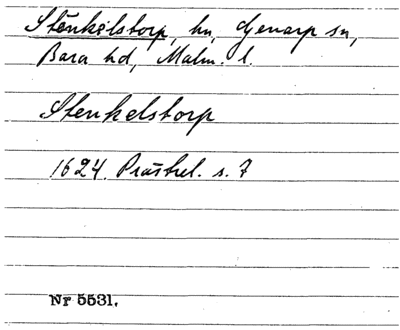 Stenkelstorp, hn, Genarp sn,
Bara hd, Malm. l.
Stenkelstorp
1624. Prästrel. s. 7
Nr 5531.